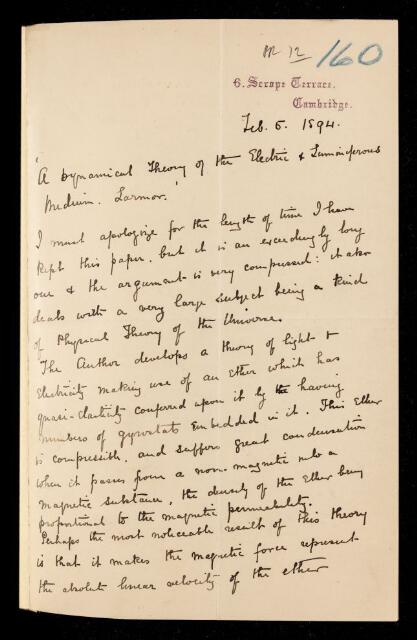 RR 12 160
6. Scrope Terrace.
Cambridge.
Feb. 5. 1894.
"A Dynamical Theory of the Electric & Luminiferous
Medium. Larmor."
I must apologize for the length of time I have
kept this paper, but it is an exceedingly long
one & the argument is very compressed: it also
deals with a very large subject being a kind
of Physical Theory of the Universe.
The Author develops a theory of light &
Electricity making use of an Ether which has
quasi-elasticity conferred upon it by the having
numbers of gyrostats embedded in it. This Ether
is compressible, and suffers great condensation
when it passes from a non-magnetic into a
magnetic substance, the density of the Ether being
proportional to the magnetic permeability.
Perhaps the most noticeable result of this theory
is that it makes the magnetic force represent
the absolute linear velocity of the ether